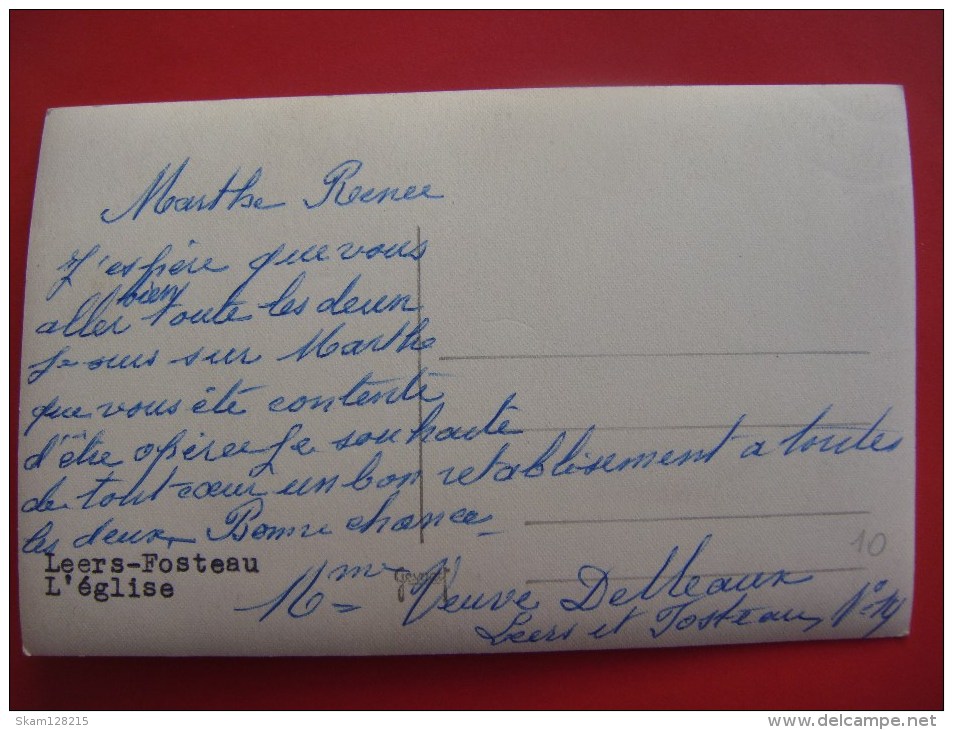 Marthe Renee
J'espère que vous
aller bien toute les deux
Je suis sur Marthe
que vous été contente
d'être opérée Je souhaite
de tout cœur un bon retablisement a toutes
les deux, Bonne chance
Leers-Fosteau
L'église
Mme Veuve DeMeaux
Leers et Fosteau N°
10
Skam128215
www.delcampe.net